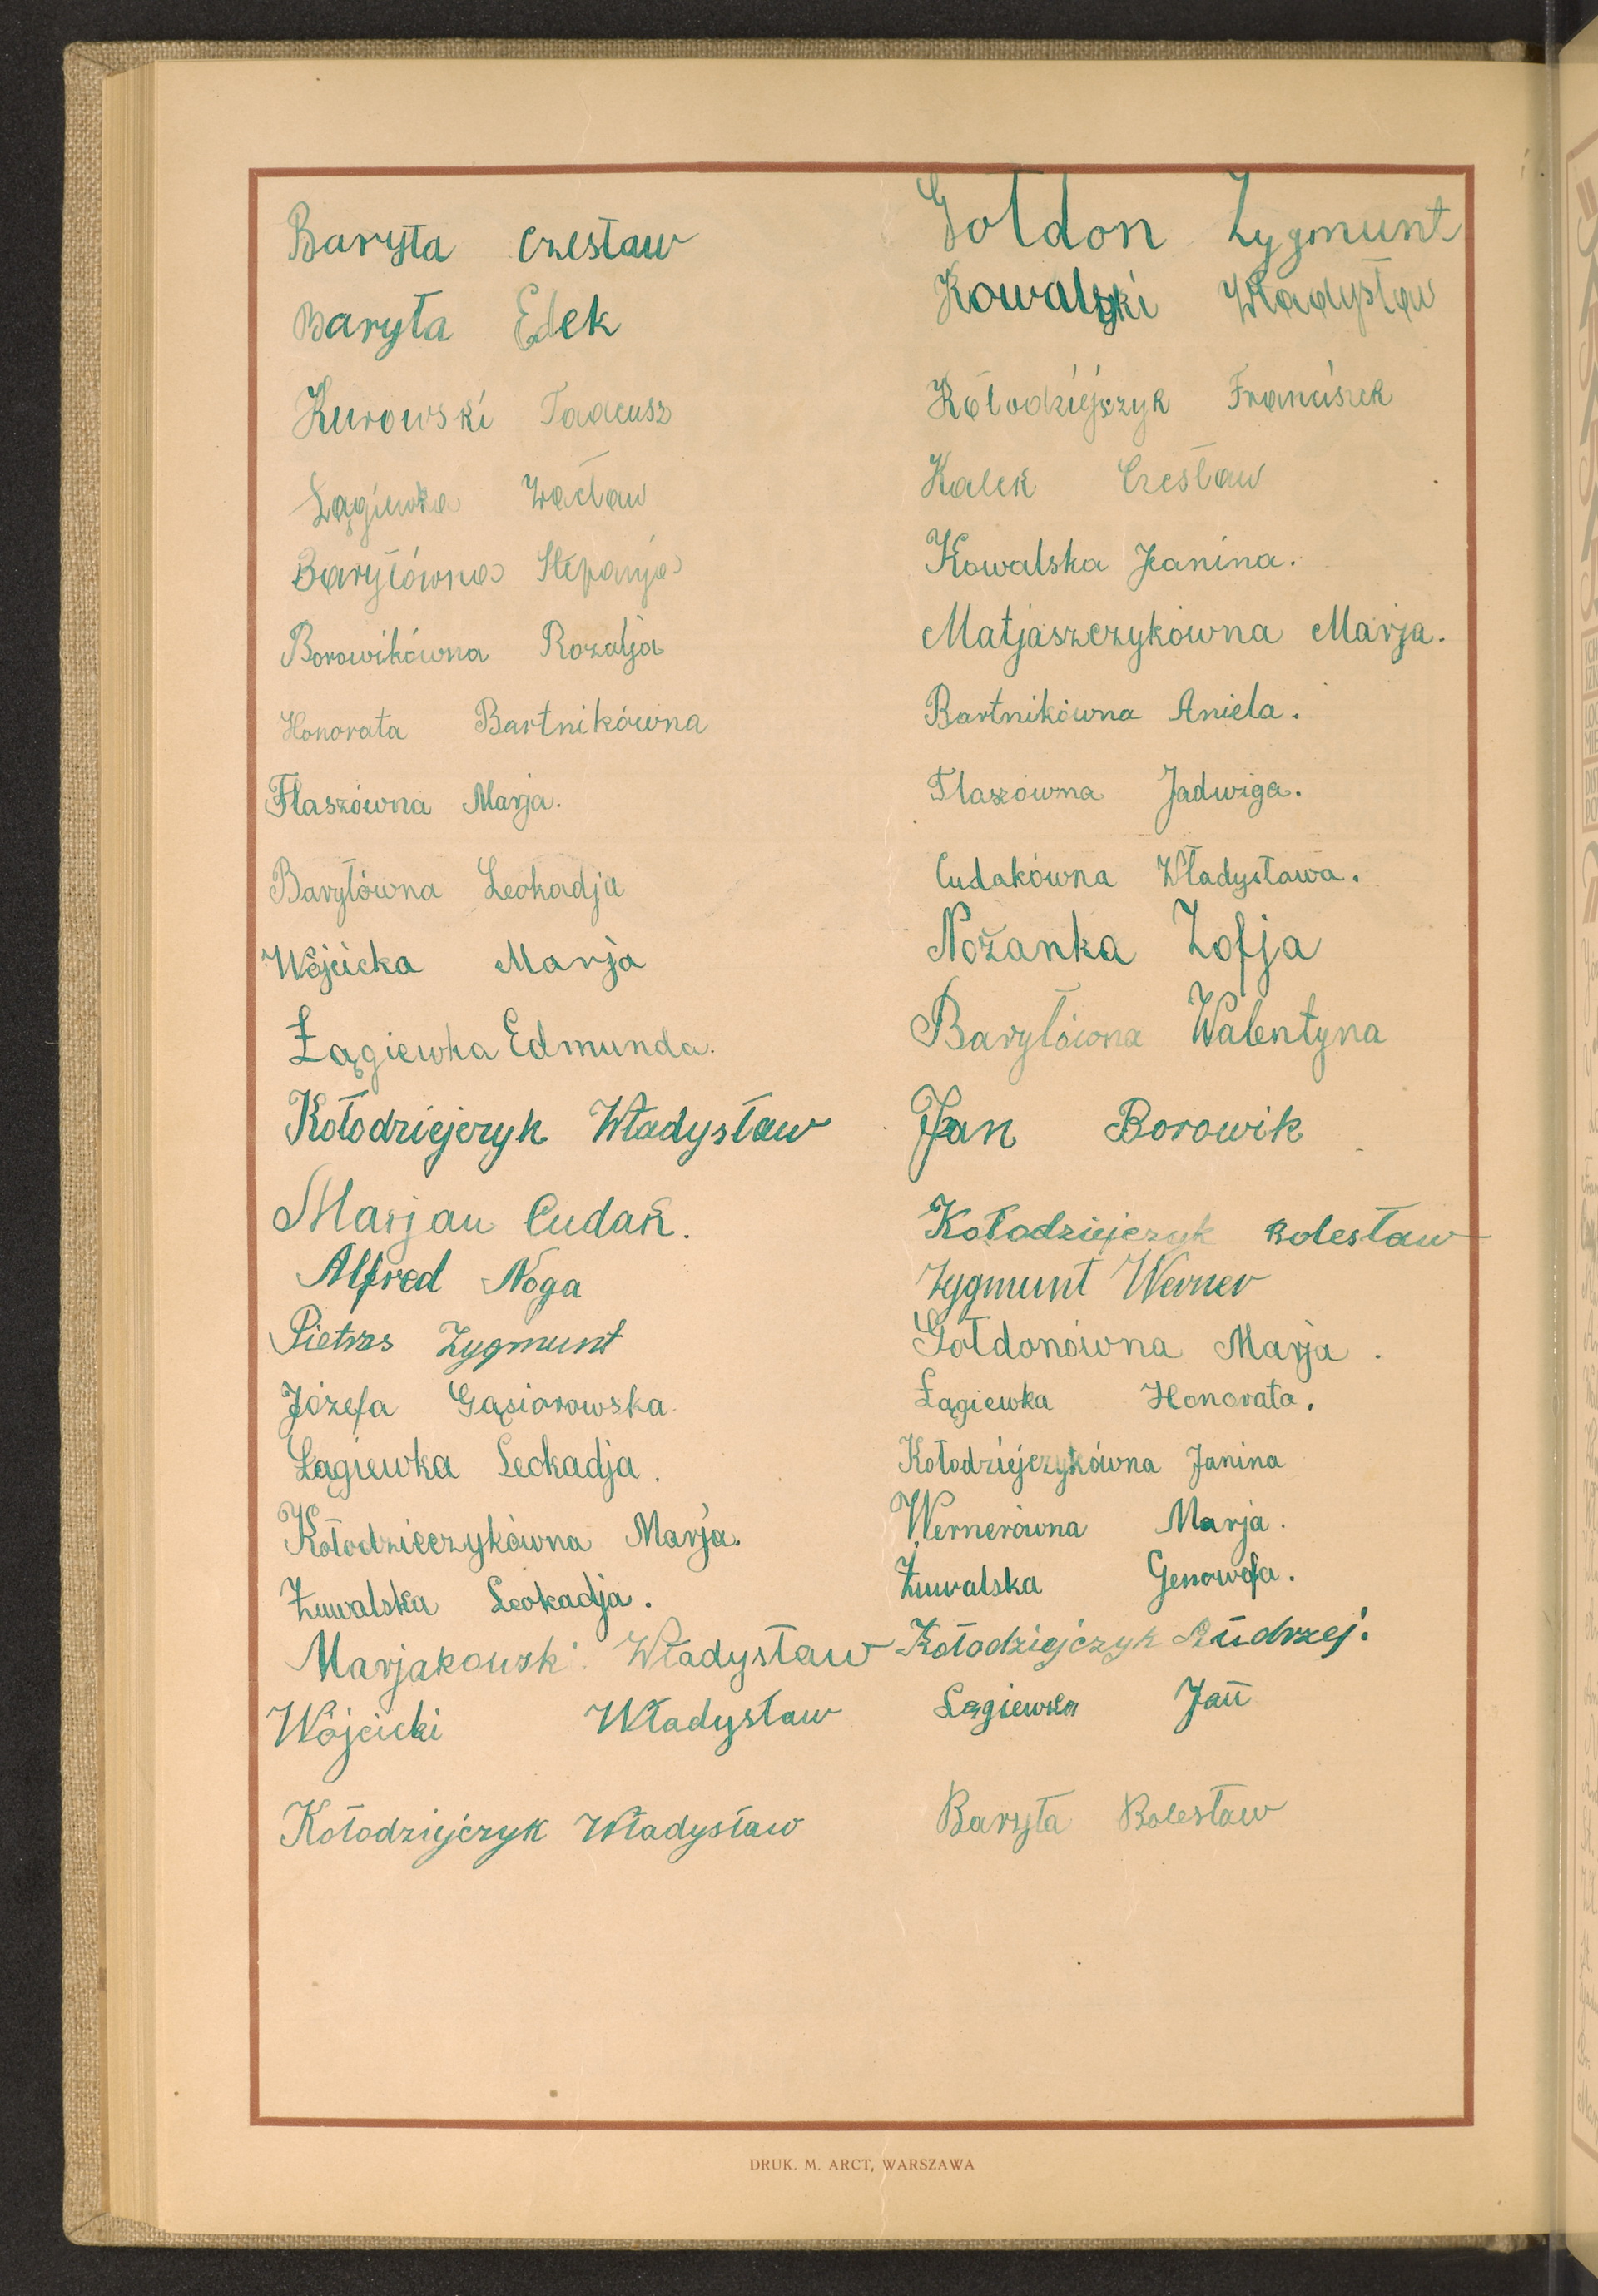 Baryła Czesław
Baryła Edek
Kurowski Tadeusz
Łągiewka Wacław
Baryłówna Stefanja
Borowikówna Rozalja
Honorata Bartnikówna
Flaszówna Marja.
Baryłówna Leokadja
Wójcicka Marja
Łągiewka Edmunda.
Kołodziejczyk Władysław
Marjan Cudak.
Alfred Noga
Pietras Zygmunt
Józefa Gąsiorowska.
Łągiewka Leokadja.
Kołodzieczykówna Marja.
Żuwalska Leokadja.
Marjakowski Władysław
Wójcicki Władysław
Kołodziejczyk Władysław
Gołdon Zygmunt
Kowalski Władysław
Kołodziejczyk Franciszek
Kalek Czesław
Kowalska Janina.
Matjaszczykówna Marja.
Bartnikówna Aniela.
Flaszówna Jadwiga.
Cudakówna Władysława.
Nożanka Zofja
Baryłówna Walentyna
Jan Borowik
Kołodziejczyk Bolesław
Zygmunt Werner
Gołdonówna Marja.
Łągiewka Honorata.
Kołodziejczykówna Janina
Wernerówna Marja.
Żuwalska Genowefa.
Kołodziejczyk Andrzej.
Łągiewka Jan
Baryła Bolesław
DRUK. M. ARCT, WARSZAWA